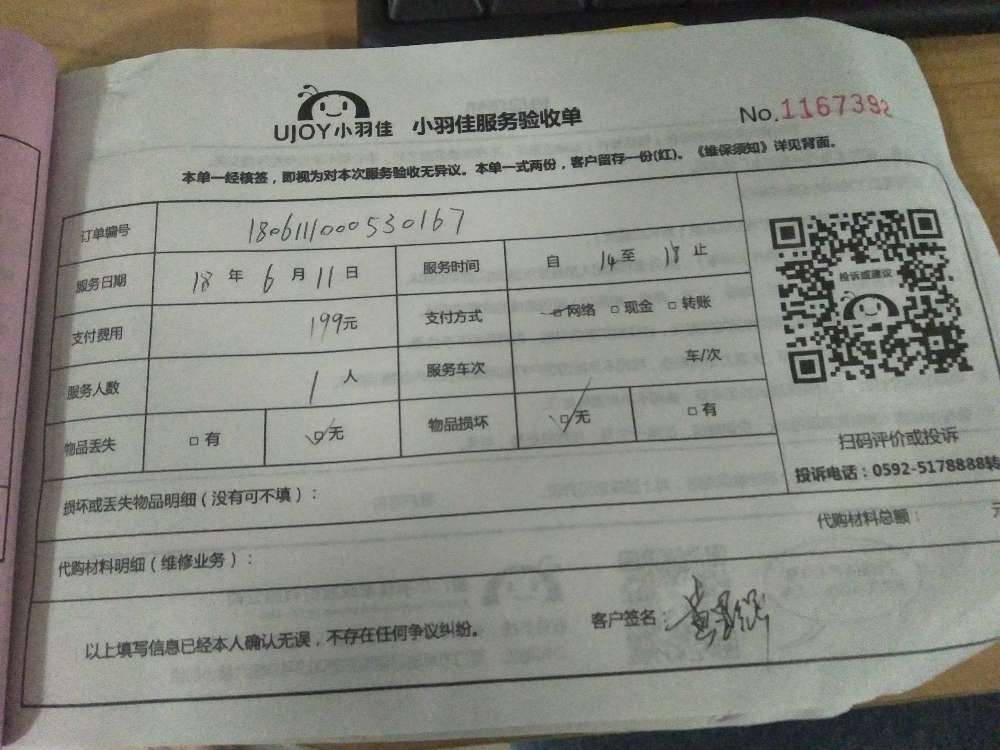 UJOY小羽佳 小羽佳服务验收单 No.1167392
本单一经核签，即视为对本次服务验收无异议。本单一式两份，客户留存一份(红)。《维保须知》详见背面。
订单编号 180611000530167
服务日期 18 年 6 月 11 日 服务时间 自 14 至 18 止
支付费用 199元 支付方式 □网络 □现金 □转账
服务人数 1 人 服务车次 车/次
物品丢失 □有 □无 物品损坏 □无 □有
投诉或建议
扫码评价或投诉
投诉电话：0592-5178888转
损坏或丢失物品明细（没有可不填）：
代购材料明细（维修业务）： 代购材料总额： 元
以上填写信息已经本人确认无误，不存在任何争议纠纷。 客户签名：